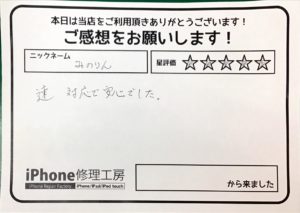 本日は当店をご利用頂きありがとうございます！
ご感想をお願いします！
ニックネーム
みのりん
星評価 ☆☆☆☆☆
速 対応で安心でした。
iPhone修理工房
iPhone Repair Factory iPhone/iPad/iPod touch
から来ました